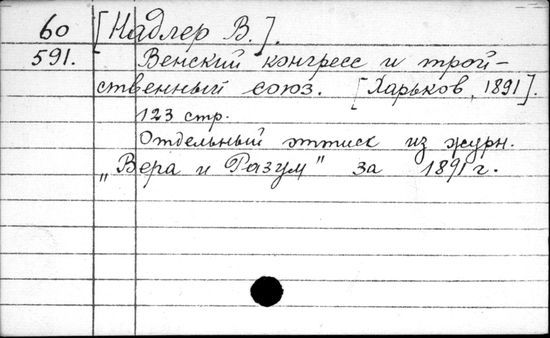 60 [Надлер В.].
591. Венский конгресс и трой-
ственный союз. [Харьков, 1891].
123 стр.
Отдельный оттиск из журн.
„Вера и Разум" за 1891 г.